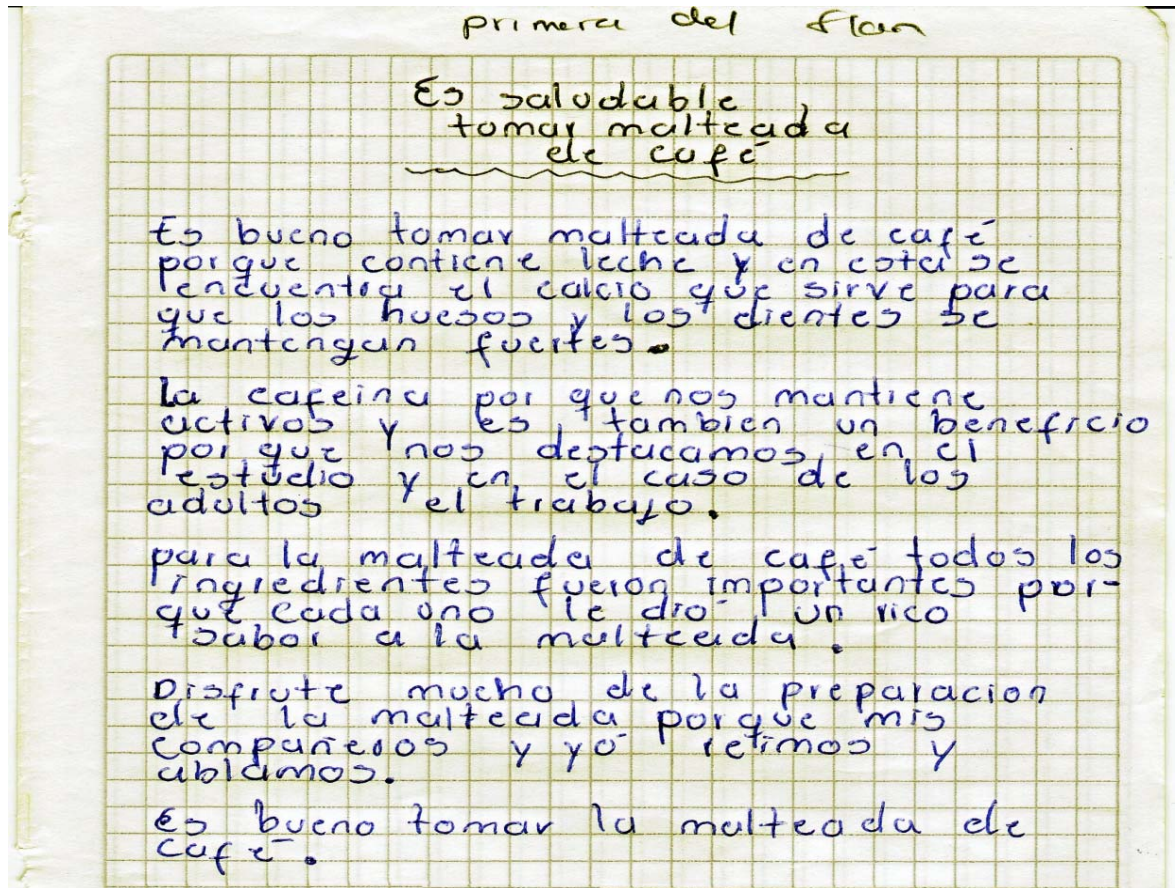 primera del flan
Es saludable
tomar malteada
de café
Es bueno tomar malteada de café
porque contiene leche y en esta se
encuentra el calcio que sirve para
que los huesos y los dientes se
mantengan fuertes.
La cafeina por que nos mantiene
activos y es tambien un beneficio
por que nos destacamos en el
estudio y en el caso de los
adultos el trabajo.
para la malteada de café todos los
ingredientes fueron importantes por-
que cada uno le dió un rico
sabor a la malteada.
Disfrute mucho de la preparacion
de la malteada porque mis
compañeros y yó reimos y
ablamos.
Es bueno tomar la malteada de
café.